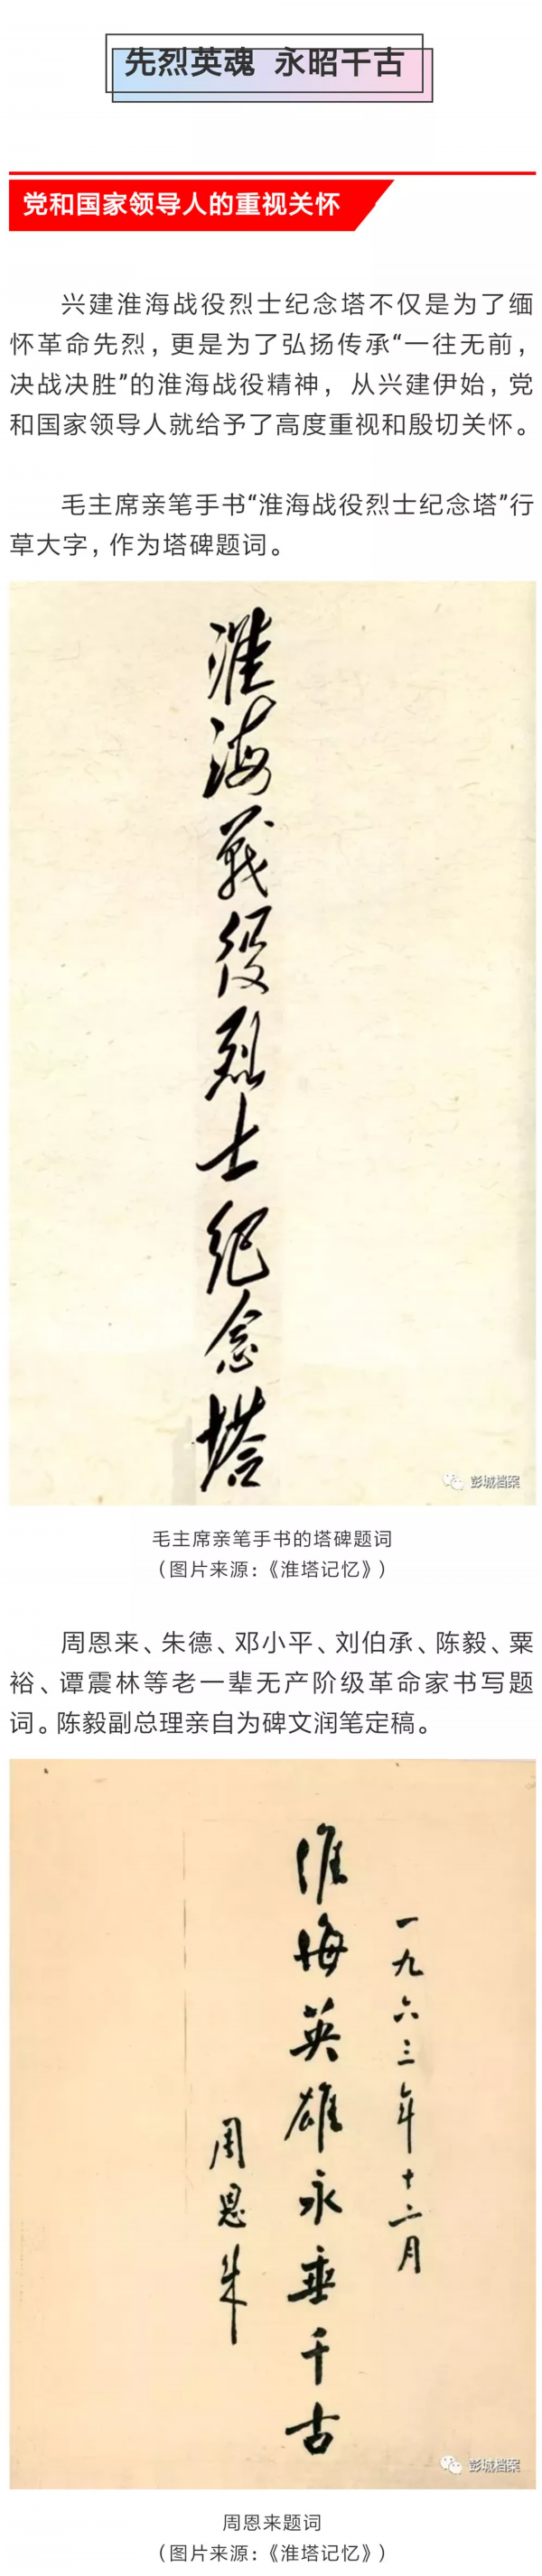 先烈英魂 永昭千古
党和国家领导人的重视关怀
兴建淮海战役烈士纪念塔不仅是为了缅
怀革命先烈，更是为了弘扬传承“一往无前，
决战决胜”的淮海战役精神，从兴建伊始，党
和国家领导人就给予了高度重视和殷切关怀。
毛主席亲笔手书“淮海战役烈士纪念塔”行
草大字，作为塔碑题词。
淮海战役烈士纪念塔
彭城档案
毛主席亲笔手书的塔碑题词
（图片来源：《淮塔记忆》）
周恩来、朱德、邓小平、刘伯承、陈毅、粟
裕、谭震林等老一辈无产阶级革命家书写题
词。陈毅副总理亲自为碑文润笔定稿。
一九六三年十二月
淮海英雄永垂千古
周恩来
彭城档案
周恩来题词
（图片来源：《淮塔记忆》）